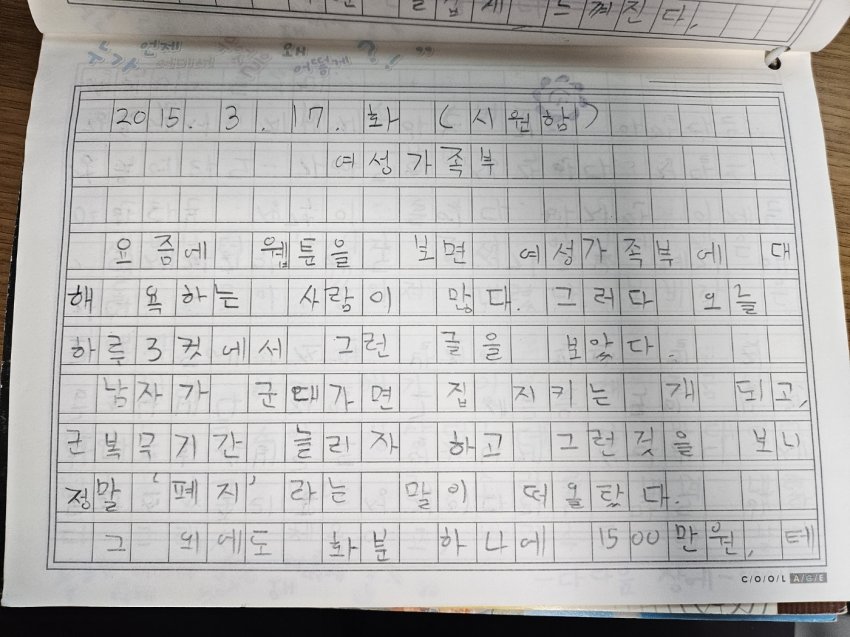 느껴진다.
누가 언제 왜
어떻게 ? ! "
2015. 3. 17. 화 (시원함)
여성가족부
요즘에 웹툰을 보면 여성가족부에 대
해 욕하는 사람이 많다. 그러다 오늘
하루 3컷에서 그런 글을 보았다.
남자가 군대가면 집 지키는 개 되고,
군복무기간 늘리자 하고 그런것을 보니
정말 '폐지' 라는 말이 떠올랐다.
그 외에도 화분 하나에 1500만원, 테
COOL AGE